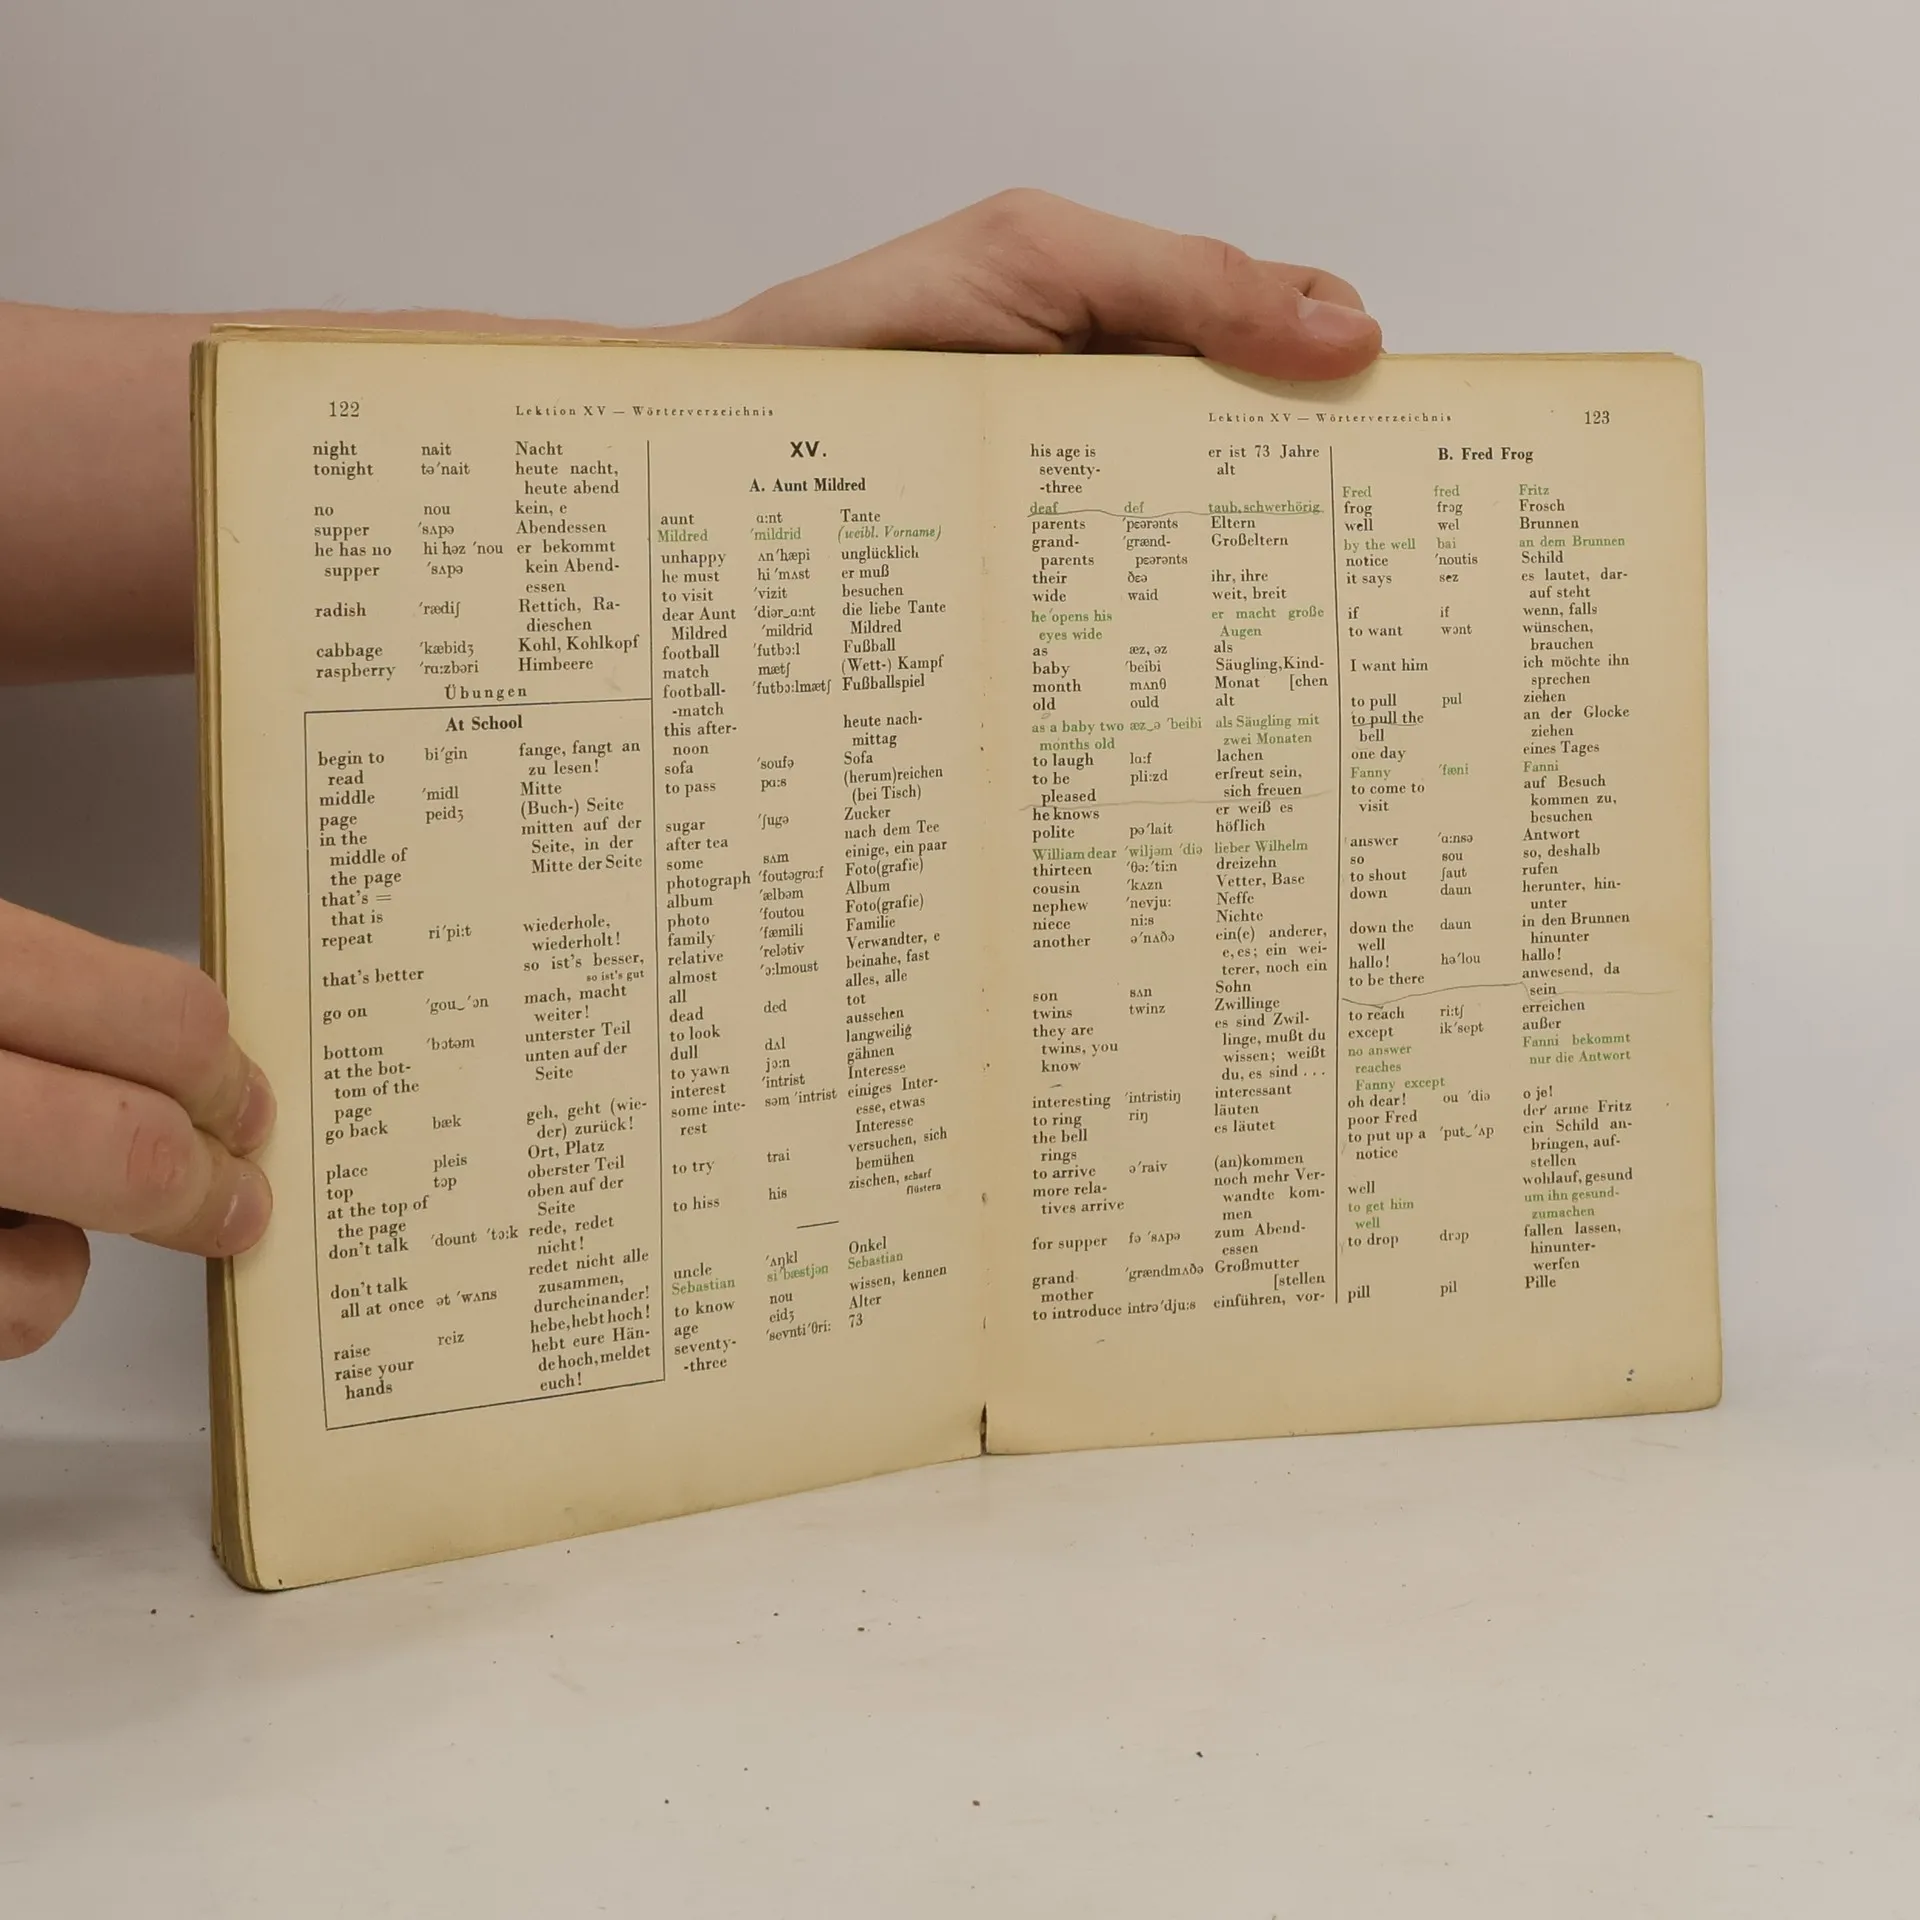 122
Lektion XV — Wörterverzeichnis
night nait Nacht
tonight tə'nait heute nacht,
heute abend
no nou kein, e
supper 'sʌpə Abendessen
he has no hi həz 'nou er bekommt
supper 'sʌpə kein Abend-
essen
radish 'rædiʃ Rettich, Ra-
dieschen
cabbage 'kæbidʒ Kohl, Kohlkopf
raspberry 'rɑ:zbəri Himbeere
Übungen
At School
begin to bi'gin fange, fangt an
read zu lesen!
middle 'midl Mitte
page peidʒ (Buch-) Seite
in the mitten auf der
middle of Seite, in der
the page Mitte der Seite
that's =
that is
repeat ri'pi:t wiederhole,
wiederholt!
that's better so ist's besser,
so ist's gut
go on 'gou‿'ɔn mach, macht
weiter!
bottom 'bɔtəm unterster Teil
at the bot- unten auf der
tom of the Seite
page
go back bæk geh, geht (wie-
der) zurück!
place pleis Ort, Platz
top tɔp oberster Teil
at the top of oben auf der
the page Seite
don't talk 'dount 'tɔ:k rede, redet
nicht!
don't talk redet nicht alle
all at once ət 'wʌns zusammen,
durcheinander!
raise reiz hebe, hebt hoch!
raise your hebt eure Hän-
hands de hoch, meldet
euch!
XV.
A. Aunt Mildred
aunt ɑ:nt Tante
Mildred 'mildrid (weibl. Vorname)
unhappy ʌn'hæpi unglücklich
he must hi 'mʌst er muß
to visit 'vizit besuchen
dear Aunt 'diər‿ɑ:nt die liebe Tante
Mildred 'mildrid Mildred
football 'futbɔ:l Fußball
match mætʃ (Wett-) Kampf
football- 'futbɔ:lmætʃ Fußballspiel
-match
this after- heute nach-
noon mittag
sofa 'soufə Sofa
to pass pɑ:s (herum)reichen
(bei Tisch)
sugar 'ʃugə Zucker
after tea nach dem Tee
some sʌm einige, ein paar
photograph 'foutəgrɑ:f Foto(grafie)
album 'ælbəm Album
photo 'foutou Foto(grafie)
family 'fæmili Familie
relative 'relətiv Verwandter, e
almost 'ɔ:lmoust beinahe, fast
all alles, alle
dead ded tot
to look aussehen
dull dʌl langweilig
to yawn jɔ:n gähnen
interest 'intrist Interesse
some inte- səm 'intrist einiges Inter-
rest esse, etwas
Interesse
to try trai versuchen, sich
bemühen
to hiss his zischen, scharf
flüstern
uncle 'ʌŋkl Onkel
Sebastian si'bæstjən Sebastian
to know nou wissen, kennen
age eidʒ Alter
seventy- 'sevnti'θri: 73
-three
Lektion XV — Wörterverzeichnis
123
his age is er ist 73 Jahre
seventy- alt
-three
deaf def taub, schwerhörig
parents 'pɛərənts Eltern
grand- 'grænd- Großeltern
parents pɛərənts
their ðɛə ihr, ihre
wide waid weit, breit
he opens his er macht große
eyes wide Augen
as æz, əz als
baby 'beibi Säugling, Kind-
month mʌnθ Monat [chen
old ould alt
as a baby two æz‿ə 'beibi als Säugling mit
months old zwei Monaten
to laugh lɑ:f lachen
to be pli:zd erfreut sein,
pleased sich freuen
he knows er weiß es
polite pə'lait höflich
William dear 'wiljəm 'diə lieber Wilhelm
thirteen 'θə:'ti:n dreizehn
cousin 'kʌzn Vetter, Base
nephew 'nevju: Neffe
niece ni:s Nichte
another ə'nʌðə ein(e) anderer,
e, es; ein wei-
terer, noch ein
son sʌn Sohn
twins twinz Zwillinge
they are es sind Zwil-
twins, you linge, mußt du
know wissen; weißt
du, es sind . . .
interesting 'intristiŋ interessant
to ring riŋ läuten
the bell es läutet
rings
to arrive ə'raiv (an)kommen
more rela- noch mehr Ver-
tives arrive wandte kom-
men
for supper fə 'sʌpə zum Abend-
essen
grand- 'grændmʌðə Großmutter
mother [stellen
to introduce intrə'dju:s einführen, vor-
B. Fred Frog
Fred fred Fritz
frog frɔg Frosch
well wel Brunnen
by the well bai an dem Brunnen
notice 'noutis Schild
it says sez es lautet, dar-
auf steht
if if wenn, falls
to want wɔnt wünschen,
brauchen
I want him ich möchte ihn
sprechen
to pull pul ziehen
to pull the an der Glocke
bell ziehen
one day eines Tages
Fanny 'fæni Fanni
to come to auf Besuch
visit kommen zu,
besuchen
answer 'ɑ:nsə Antwort
so sou so, deshalb
to shout ʃaut rufen
down daun herunter, hin-
unter
down the daun in den Brunnen
well hinunter
hallo! hə'lou hallo!
to be there anwesend, da
sein
to reach ri:tʃ erreichen
except ik'sept außer
no answer Fanni bekommt
reaches nur die Antwort
Fanny except
oh dear! ou 'diə o je!
poor Fred der arme Fritz
to put up a 'put‿'ʌp ein Schild an-
notice bringen, auf-
stellen
well wohlauf, gesund
to get him um ihn gesund-
well zumachen
to drop drɔp fallen lassen,
hinunter-
werfen
pill pil Pille